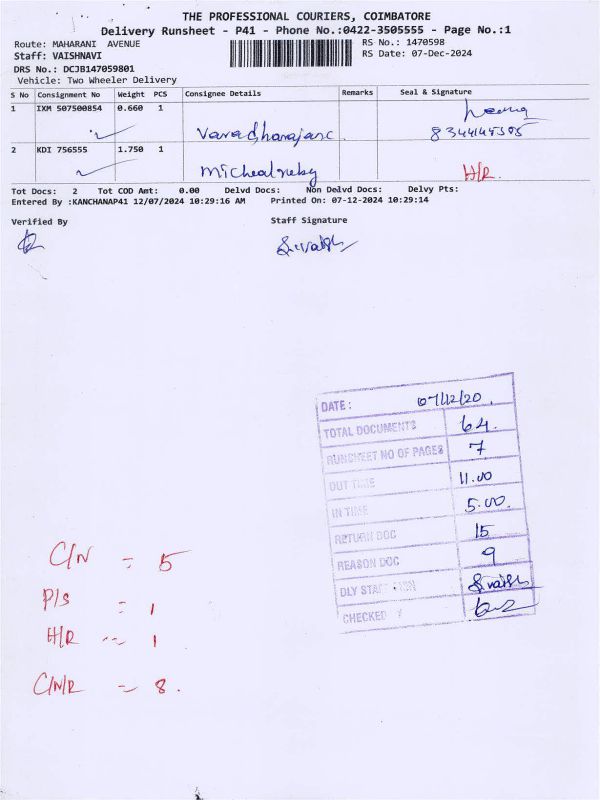 THE PROFESSIONAL COURIERS, COIMBATORE
Delivery Runsheet - P41 - Phone No.:0422-3505555 - Page No.:1
Route: MAHARANI AVENUE
RS No.: 1470598
Staff: VAISHNAVI
RS Date: 07-Dec-2024
DRS No.: DCJB147059801
Vehicle: Two Wheeler Delivery
S No Consignment No Weight PCS Consignee Details Remarks Seal & Signature
1 IXM 507500854 0.660 1
Varadharajanc
2 KDI 756555 1.750 1
H/R.
Tot Docs: 2 Tot COD Amt: 0.00 Delvd Docs: Non Delvd Docs: Delvy Pts:
Entered By :KANCHANAP41 12/07/2024 10:29:16 AM Printed On: 07-12-2024 10:29:14
Verified By Staff Signature
S.vaish
DATE : 07/12/20.
TOTAL DOCUMENTS 64.
RUNSHEET NO OF PAGES 7
OUT TIME 11.00
IN TIME 5.00.
RETURN DOC 15
REASON DOC 9
DLY STAFF SIGN S.vaish
CHECKED
C/N = 5
P/S = 1
H/R = 1
C/N/R = 8.